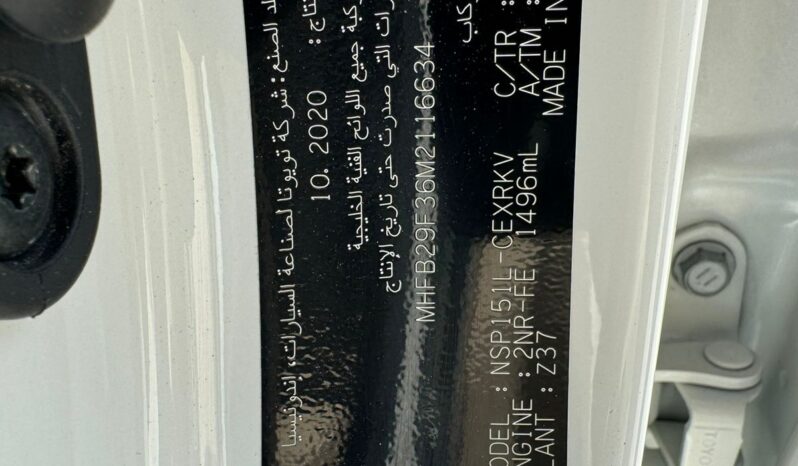 لد الصنع : شركة تويوتا لصناعة السيارات، إندونيسيا
نتاج : 10. 2020
ركبة جميع اللوائح الفنية الخليجية
رات التي صدرت حتى تاريخ الإنتاج
MHFB29F36M2116634
ركاب
ODEL : NSP151L-CEXRKV C/TR :
NGINE : 2NR-FE 1496mL A/TM :
LANT : Z37 MADE IN